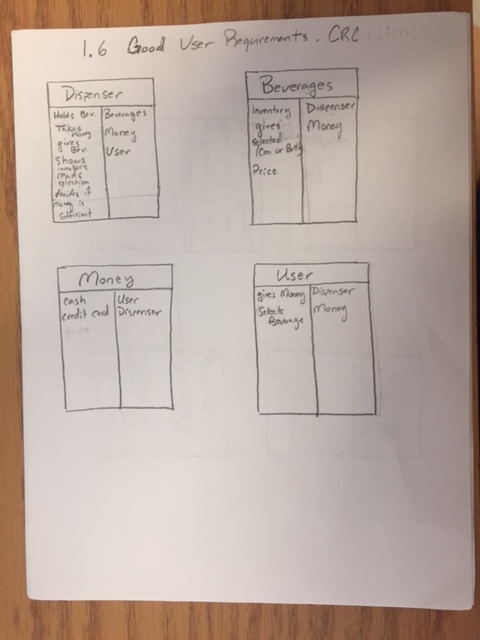 1.6 Good User Requirements. CRC
Dispenser
Holds Bev.
Takes money
gives Bev.
shows inventory
reads selection
decides if
money is
sufficient
Beverages
Money
User
Beverages
inventory
gives
selected
(Can or Bottle)
Price
Dispenser
Money
Money
Cash
credit card
price
User
Dispenser
User
gives Money
Selects
Beverage
Dispenser
Money